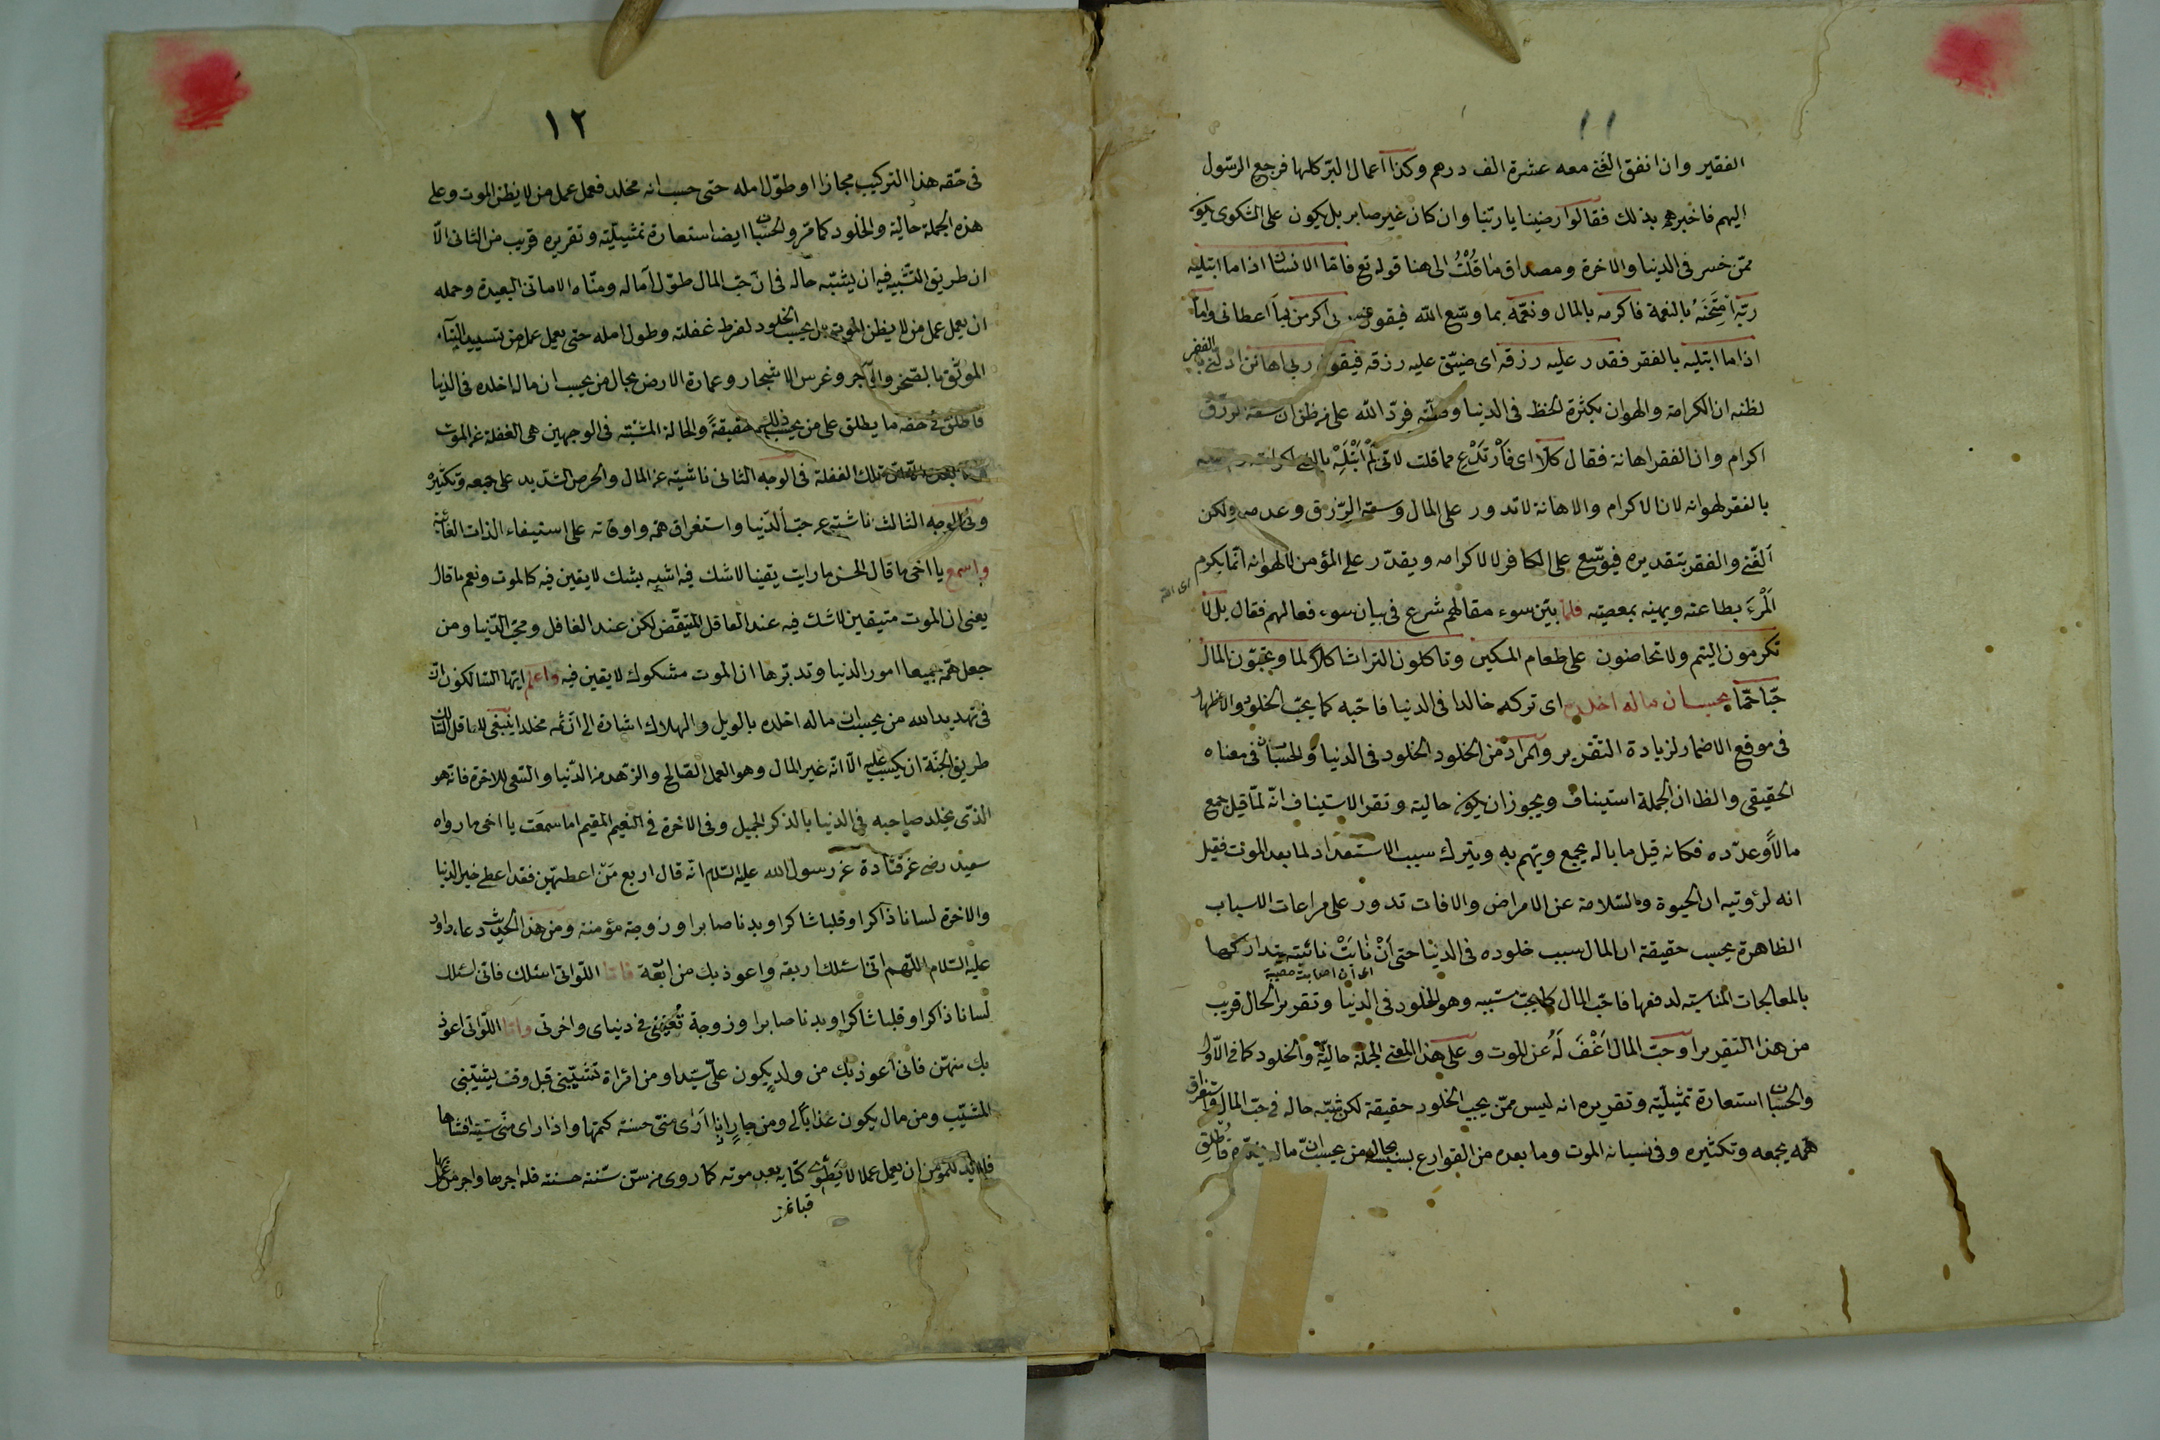 ١١
الفقير وان انفق الغنى معه عشرة الف درهم وكذا اعمال البرّ كلها فرجع الرّسول
اليهم فاخبرهم بذلك فقالوا رضينا يا ربّنا وان كان غير صابر بل يكون على الشكوى فهو
ممّن خسر فى الدنيا والاخرة ومصداق ما قُلْتُ الى هنا قوله تع فامّا الانسان اذا ما ابتليه
ربّه امتَحَنَهُ بالنعمة فاكرمه بالمال ونعّمه بما وسّع الله فيقول ربى اكرمن بما اعطانى وامّا
اذا ما ابتليه بالفقر فقدر عليه رزقه اى ضيّق عليه رزقه فيقول ربى اهانن اذلّنى بالفقر
لظنه ان الكرامة والهوان بكثرة الحظ فى الدنيا وقلّته فردّ الله على من ظنّ ان سعة الرزق
اكرام وان الفقر اهانة فقال كلّا اى فَاْرتَدْعِ مما قلت لانى لَمْ اَبْتَلِهْ بالغنى لكرامته
بالفقر لهوانه لان الاكرام والاهانة لا تدور على المال وسعة الرّزق وعدمه ولكن
اَلغنى والفقر بتقديره فيوسّع على الكافر لا لاكرامه ويقدّر على المؤمن لا لهوانه انّما يكرم
اى الله
اَلْمرءَ بطاعته ويهينه بمعصيته فلمّا بيّن سوء مقالهم شرع فى بيان سوء فعالهم فقال بل لا
تكرمون اليتيم ولا تحاضون على طعام المسكين وتاكلون التراث اكلاً لما وتحبّون المال
حبّا جمّا يحسب ان ماله اخلده اى تركه خالدا فى الدنيا فاحبّه كما يحبّ الخلود والاظهار
فى موقع الاضمار لزيادة التقرير والمراد من الخلود الخلود فى الدنيا والحسبان فى معناه
الحقيقى والظ ان الجملة استيناف ويجوز ان يكون حالية وتقر الاستيناف انّه لمّا قيل جمع
مالاً وعدّده فكانه قيل ما باله يجمع ويهتم به ويترك سبب الاستعداد لما بعد الموت فقيل
انه لرؤتيه ان الحيوة والسّلامة عن الامراض والافات تدور على مراعات الاسباب
الظاهرة يحسب حقيقة ان المال سبب خلوده فى الدنيا حتى اَنْ نابَتْ نائبته يتداركها
اى ان اصابت مصيبة
بالمعالجات المناسبة لدفعها فاحب المال كما يحبّ مسببه وهو الخلود فى الدنيا وتقرير الحال قريب
من هذا التقرير اَو حبّ المال اَغْفَ لَهُ عن الموت وعلى هذا المعنى الجملة حاليّة والخلود كما فى الاوّل
والحسبان استعارة تمثيليّة وتقريره انه ليس ممّن يحسب الخلود حقيقة لكن شبّه حاله فى حبّ المال واستغراق
همّه بجمعه وتكثيره وفى نسيانه الموت وما بعده من القوارع بسببه بحال من يحسب انّ ماله يخلّده فاُطلِق

١٢
فى حقه هذا التركيب مجازا او طوّل امله حتى حسب انه مخلد فعمل عمل من لا يظن الموت وعلى
هذه الجملة حالية والخلود كما مرّ والحسبان ايضا استعارة تمثيليّة وتقريره قريب من الثانى الّا
ان طريق التشبيه فيه ان يشبّه حاله فى انّ حبّ المال طوّل آماله ومنّاه الامانى البعيدة وحمله
ان يعمل عمل من لا يظن الموت بل يحسب الخلود لفرط غفلته وطول امله حتى يعمل عمله من تسييد البنآء
الموثّق بالصّخر والآجر وغرس الاشجار وعمارة الارض بحال من يحسب ان ماله اخلده فى الدنيا
فاطلق فى حقه ما يطلق على من يحسب ذلك حقيقةً والحالة المشبّته فى الوجهين هى الغفلة عن الموت
تلك الغفلة فى الوجه الثانى ناشيته عن المال والحرص الشديد على جمعه وتكثيره
وفى الوجه الثالث ناشته عن حبّ الدّنيا واستغراق همّه واوقاته على استيفاء الذات الفانية
واسمع يا اخى ما قال الحسن ما رايت يقينا لا شك فيه اشبه بشك لا يقين فيه كالموت ونعم ما قال
يعنى ان الموت متيقين لا شك فيه عند العاقل المتيقّض لكن عند الغافل ومحبّ الدّنيا ومن
جعل همّه جميعا امور الدنيا وتدبّرها ان الموت مشكوك لا يقين فيه واعلم ايّها السّالكون انّ
فى تهديد الله من يحسب ان ماله اخلده بالويل والهلاك اشارة الى انّ ثمّه مخلدا ينبغى للعاقل السّالك
طريق الجنّة ان يكسب عليه الّا انّه غير المال وهو العمل الصّالح والزّهد من الدّنيا والسّعى للاخرة فانّه هو
الّذى يخلد صاحبه فى الدنيا بالذكر الجميل وفى الآخرة فى النعيم المقيم اما سمعَت يا اخى ما رواه
سعيد رض عن قتادة عن رسول الله عليه السّلام انّه قال اربع مَنْ اعطيهّن فقد اعطى خير الدنيا
والاخرة لسانا ذاكرا وقلبا شاكرا وبدنا صابرا وزوجة مؤمنة ومن هذا الحديث دعاء داود
عليه السّلام اللّهم انّى اسئلك اربعة واعوذ بك من اربعة فامّا اللّواتى اسئلك فانّى اسئلك
لسانا ذاكرا وقلبا شاكرا وبدنا صابرا وزوجة تُعيننى فى دنياى واخرتى وامّا اللّواتى اعوذ
بك منهنّ فانى اعوذ بك من ولد يكون علىّ سيّدا ومن امْراة تشيّبنى قبل وقت يشيّبنى
المشيّب ومن مال يكون عذاباً لى ومن جارٍ اِذا رَاى منّى حسنة كتمها واذا راى منّى سيّئة افشاها
فلا بُدّ للمؤمن ان يعمل عملا لا يَطوى كتابه بعد موته كما روى من سنّ سنّة حسنة فله اجرها واجر من عمل بها